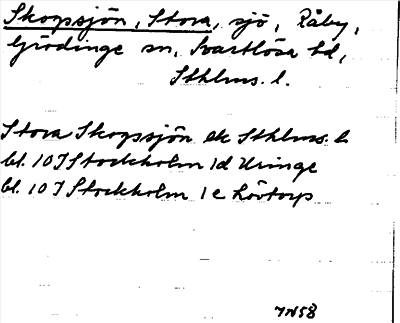 Skogssjön, Stora, sjö, Råby,
Grödinge sn, Svartlösa hd,
Sthlms. l.
Stora Skogssjön ek Sthlms. l.
bl. 10 I Stockholm 1d Uringe
bl. 10 I Stockholm 1e Lövtorp
JN58